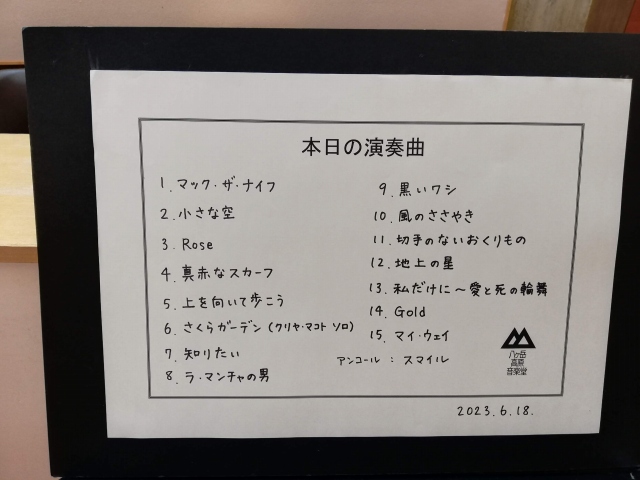 本日の演奏曲
1. マック・ザ・ナイフ
2. 小さな空
3. Rose
4. 真赤なスカーフ
5. 上を向いて歩こう
6. さくらガーデン (クリヤ・マコト ソロ)
7. 知りたい
8. ラ・マンチャの男
9. 黒いワシ
10. 風のささやき
11. 切手のないおくりもの
12. 地上の星
13. 私だけに～愛と死の輪舞
14. Gold
15. マイ・ウェイ
アンコール : スマイル
八ヶ岳
高原
音楽堂
2023.6.18.